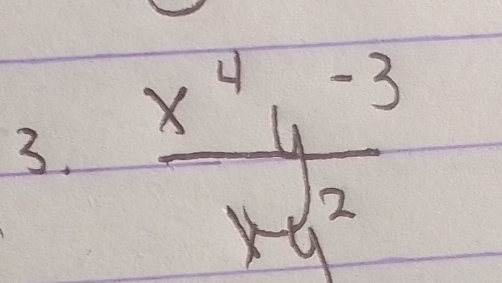 3. x⁴ y⁻³
xy²